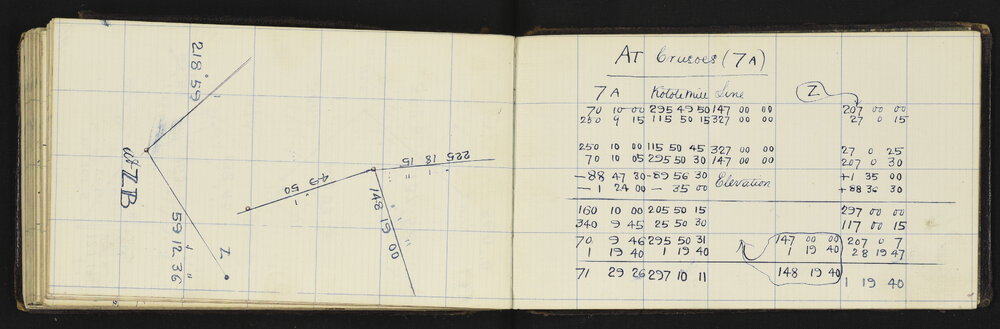 218° 59'
at Z B
59 12 36
Z.
49 50
225 18 15
148 19 00
AT Crusoes (7A)
7 A Line Z.
70 10 00 295 49 50 147 00 00 207 00 00
250 9 15 115 50 15 327 00 00 27 0 15
250 10 00 115 50 45 327 00 00 27 0 25
70 10 05 295 50 30 147 00 00 207 0 30
-88 47 30 -89 56 30 Elevation +1 35 00
- 1 24 00 - 35 00 +88 36 30
160 10 00 205 50 15 297 00 00
340 9 45 25 50 30 117 00 15
70 9 46 295 50 31 147 00 00 207 0 7
1 19 40 1 19 40 1 19 40 28 19 47
71 29 26 297 10 11 148 19 40 1 19 40